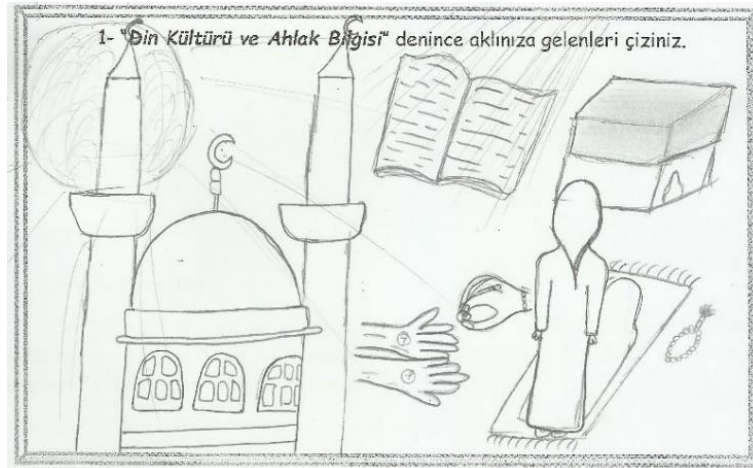 1- "Din Kültürü ve Ahlak Bilgisi" denince aklınıza gelenleri çiziniz.